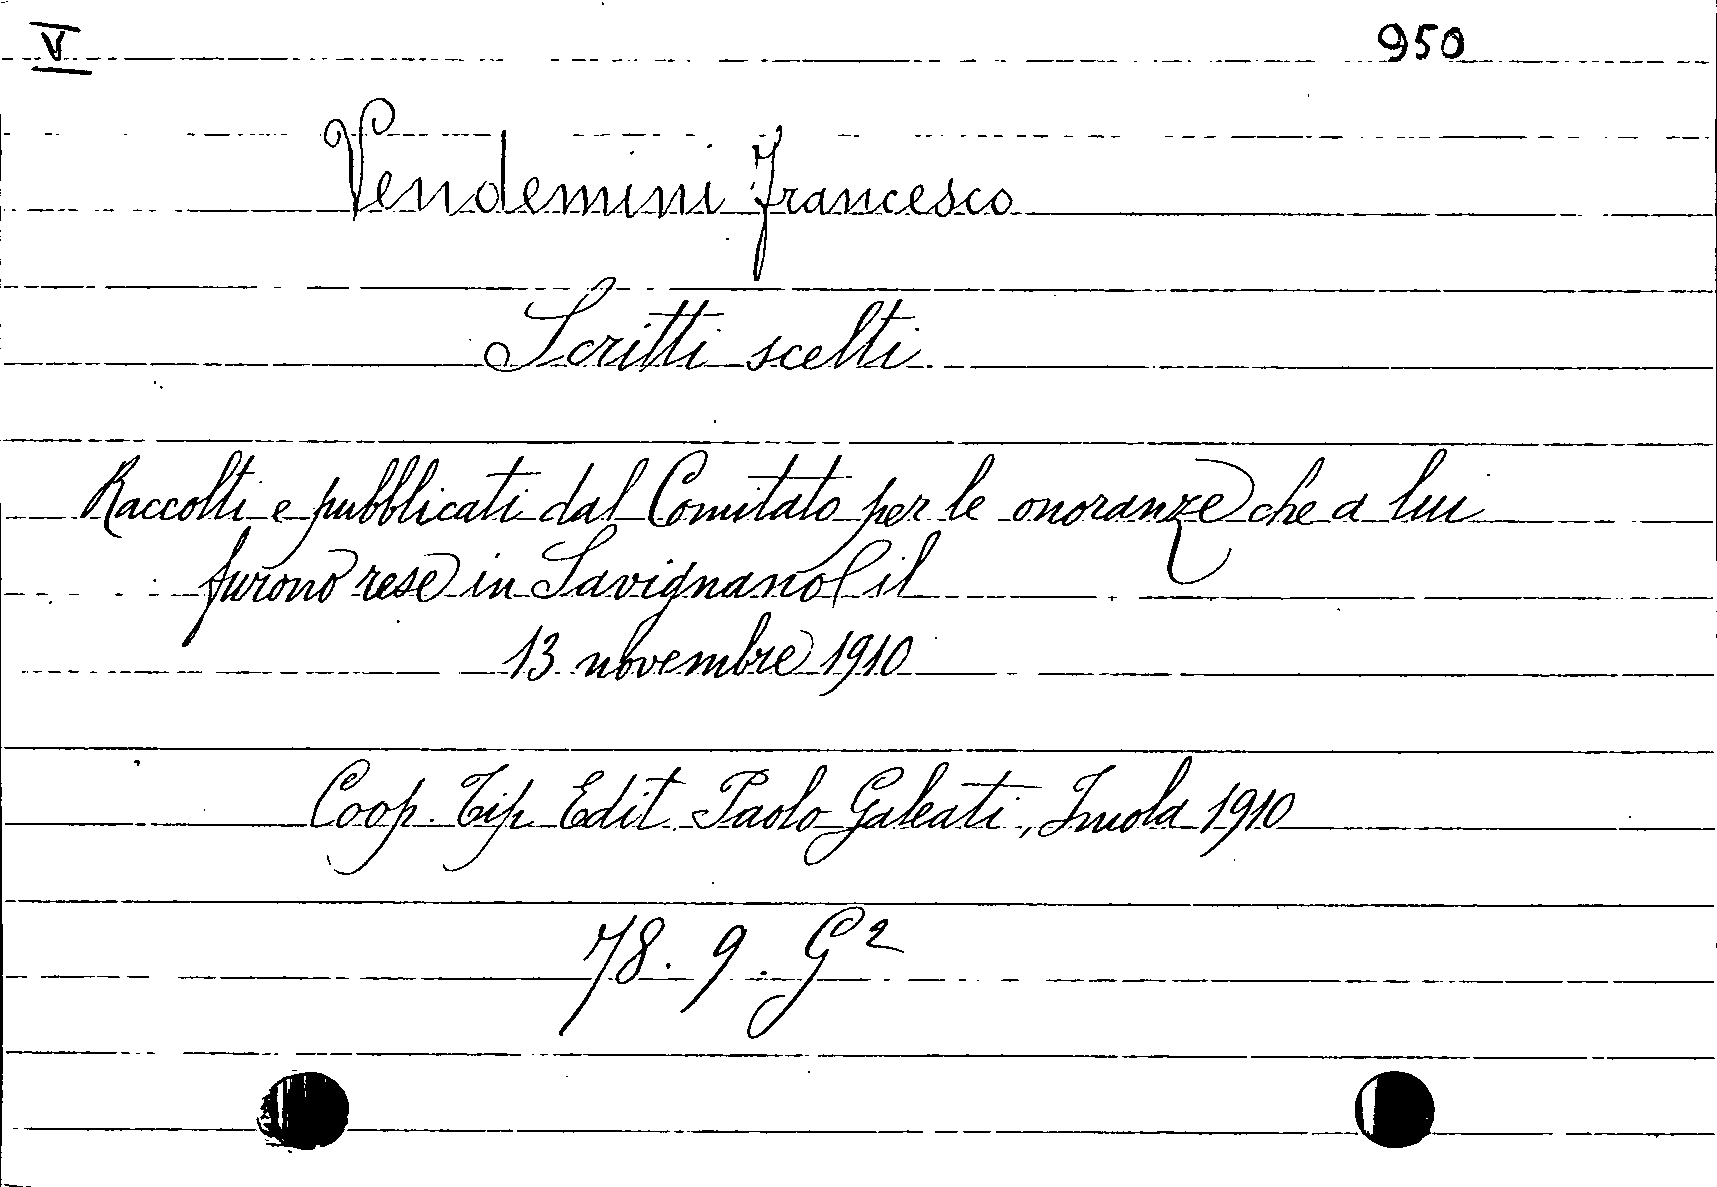 V 950
Vendemini Francesco
Scritti scelti
Raccolti e pubblicati dal Comitato per le onoranze che a lui
furono rese in Savignano il
13 novembre 1910
Coop. Tip. Edit. Paolo Galeati, Imola 1910
78. 9. G²